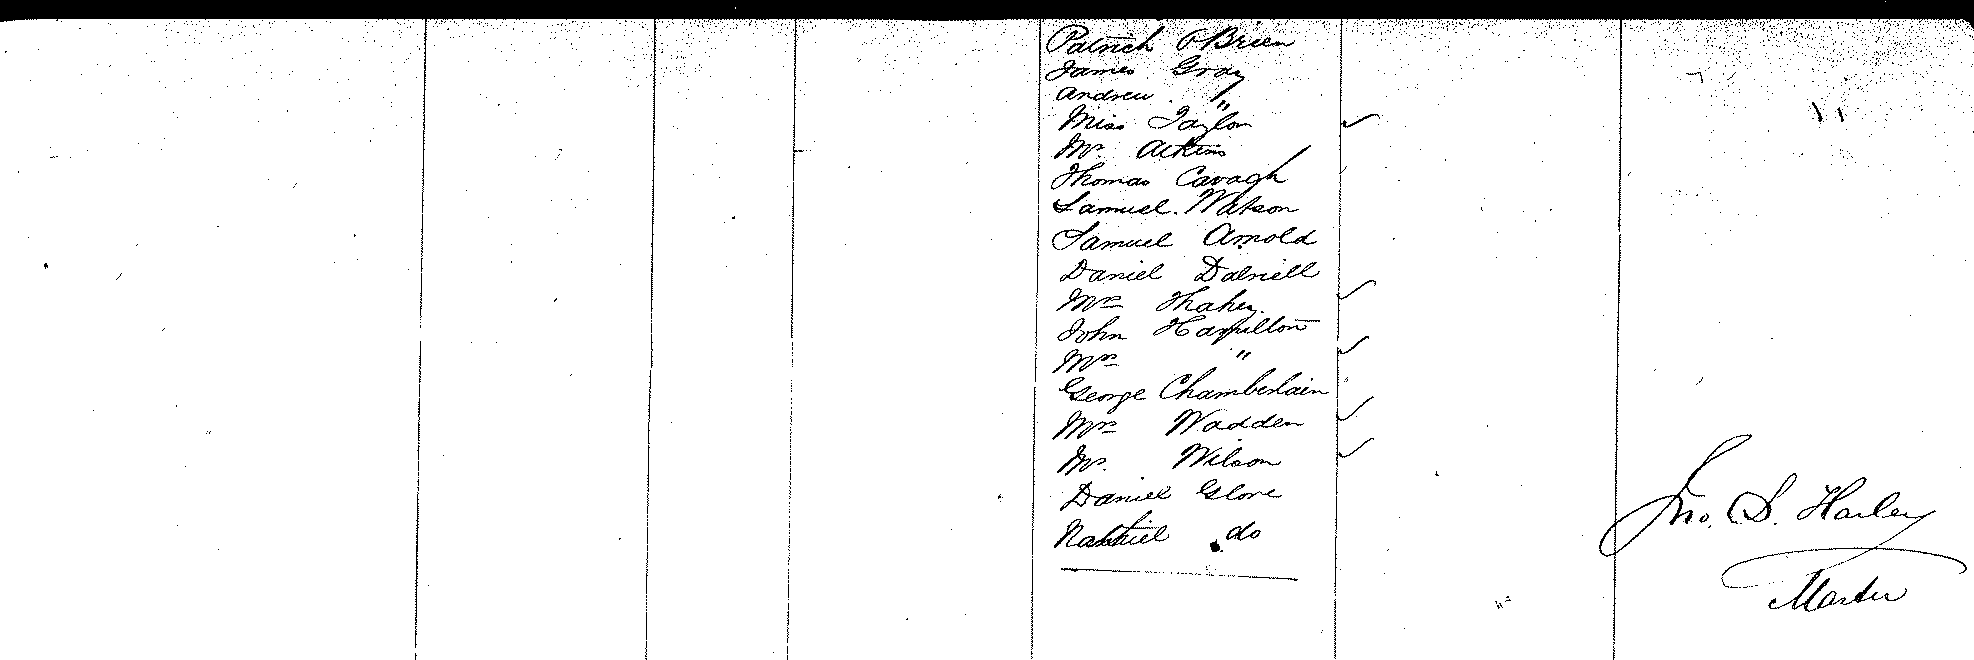 Patrick O'Brien
James Gray
Andrew "
Miss Taylor
Mr. Atkins
Thomas Cavagh
Samuel Watson
Samuel Arnold
Daniel Dalniell
Mrs
John Hamilton
Mrs "
George Chamberlain
Mrs Wadden
Mr. Wilson
Daniel Glore
do
Jno. S. Harley
Master